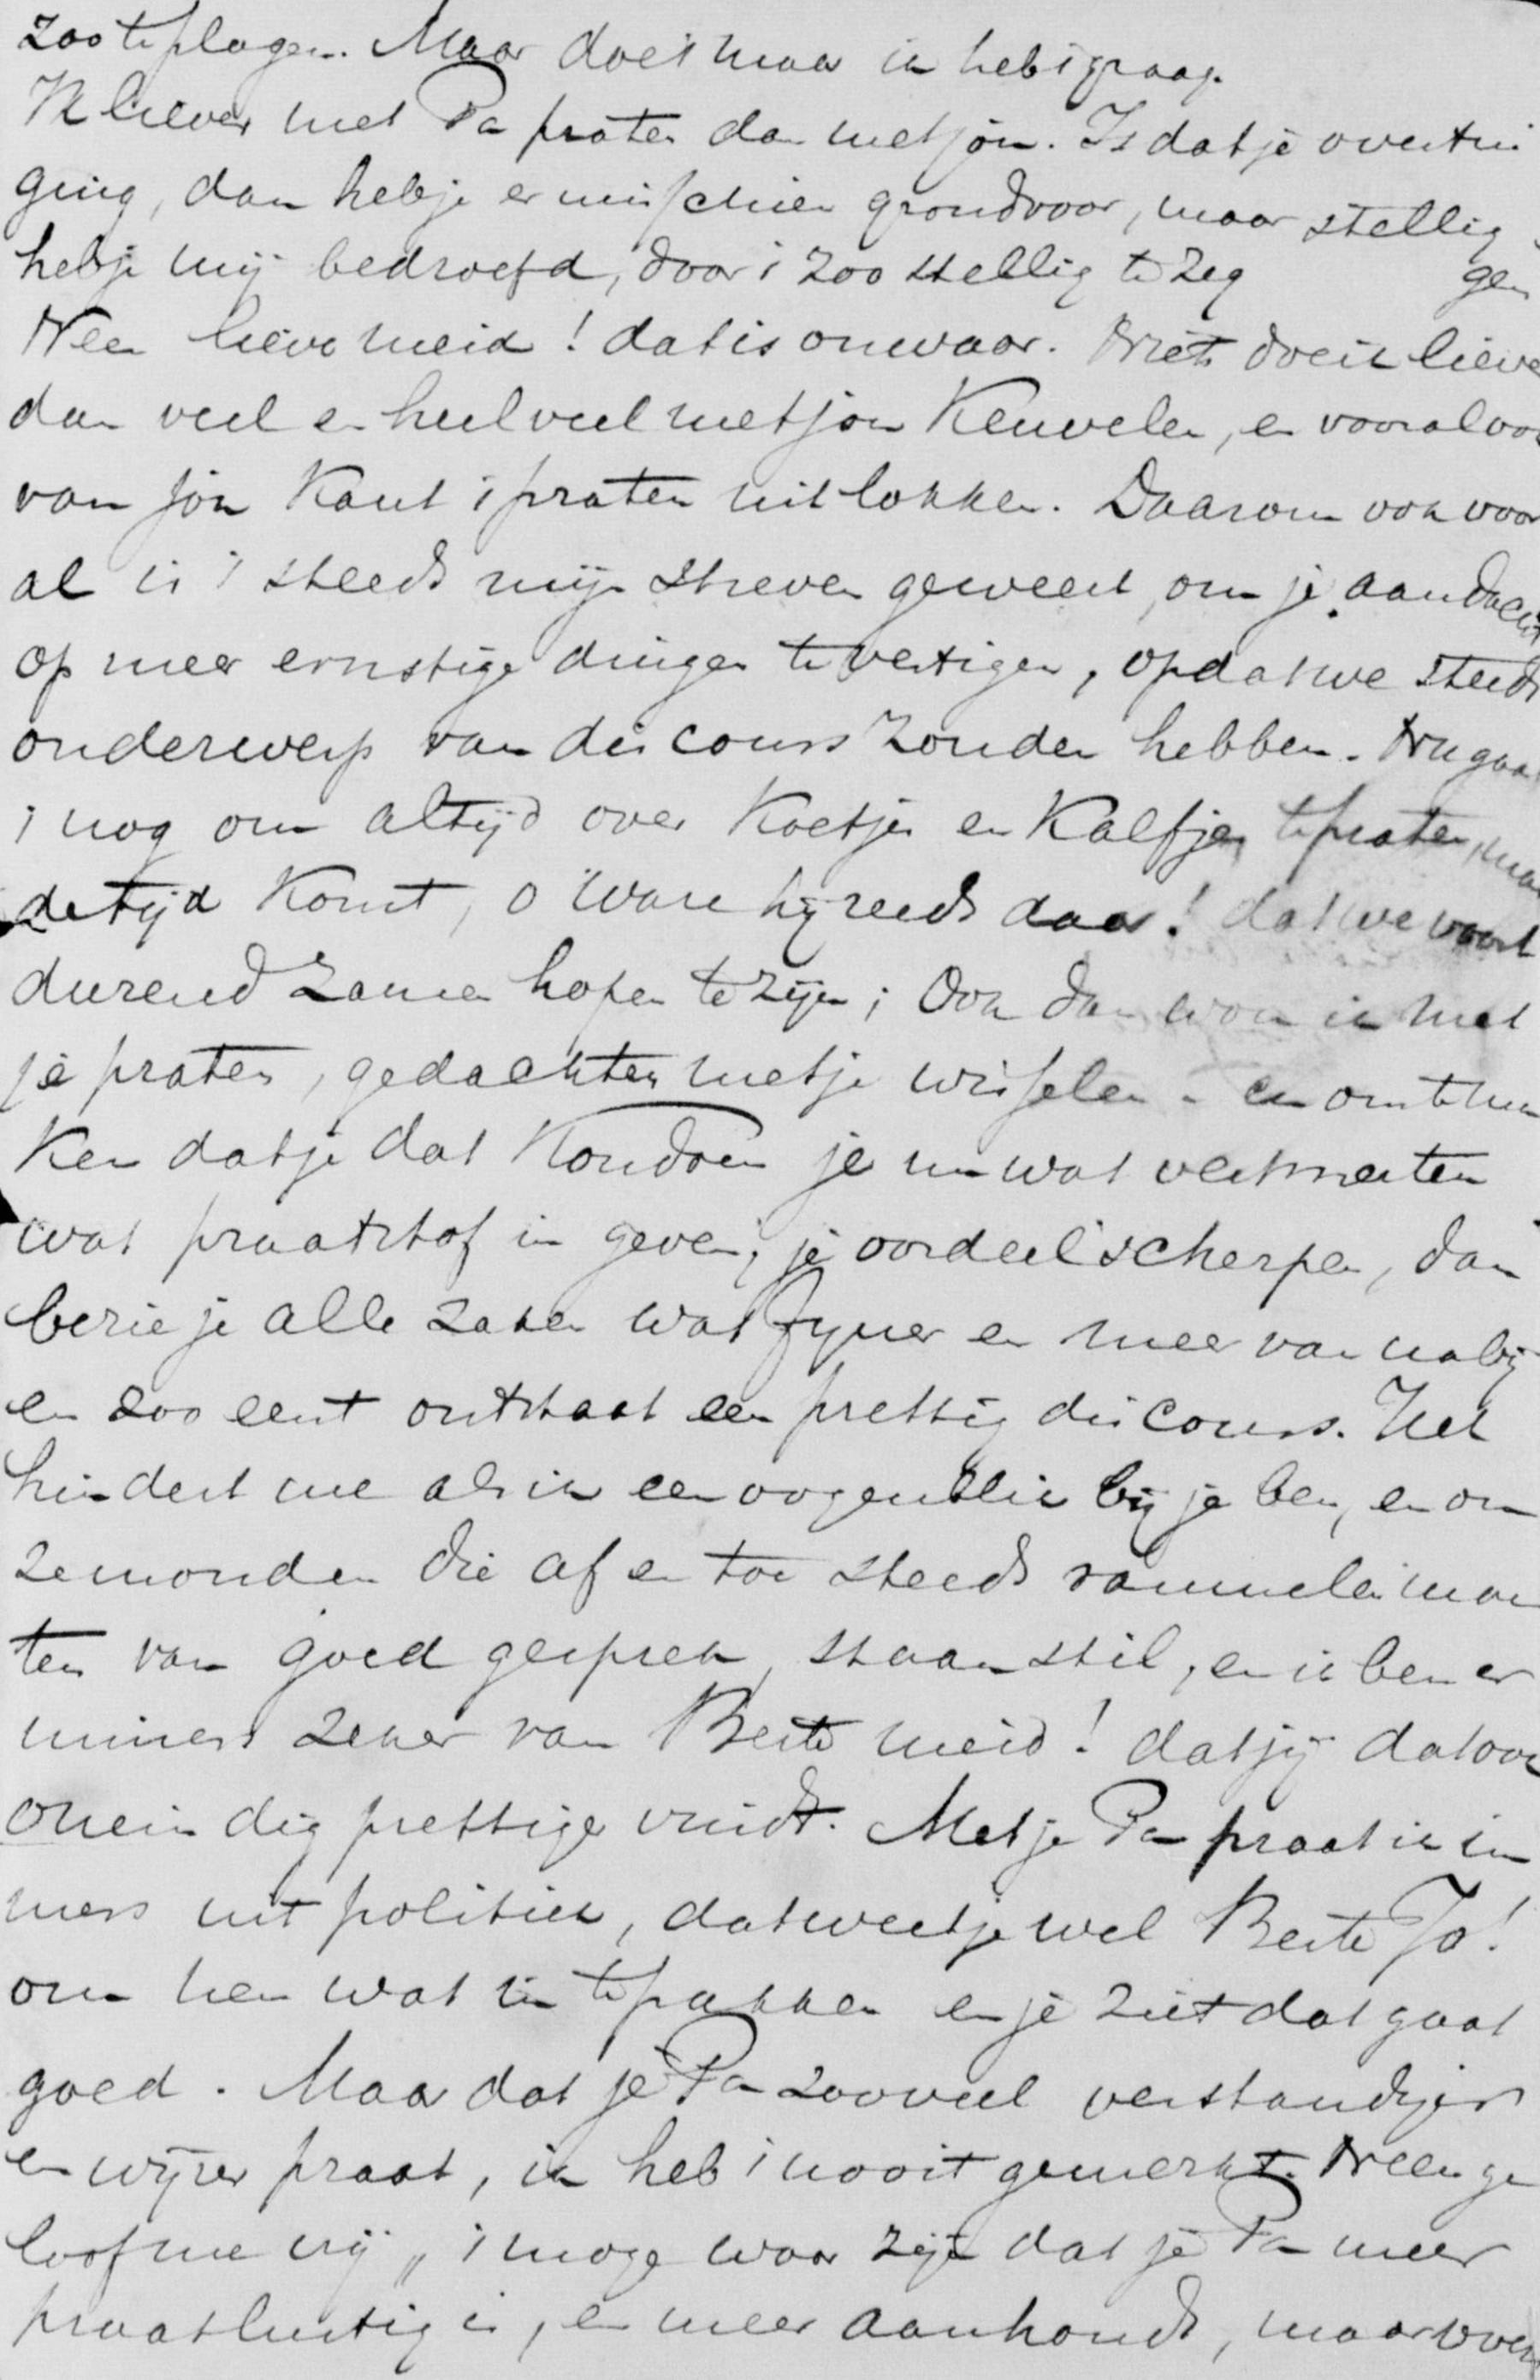 zoo te plagen. Maar doe 't maar ik heb 't graag.
Ik liever met Pa praten dan met jou. Is dat je overtui
ging, dan heb je er misschien grond voor, maar stellig
heb je mij bedroefd, door 't zoo stellig te zeg gen
Neen lieve meid! dat is onwaar. Niets doe ik lieve
dan veel en heel veel met jou Keuvelen, en vooral oo
van jou Kant 't praten uitlokken. Daarom ook voor
al is 't steeds mijn streven geweest, om je aandacht
op meer ernstige dingen te vestigen, opdat we steeds
onderwerp van discours zouden hebben. Nu gaa
't nog om altijd over Koetjes en Kalfjes te praten, maa
de tijd Komt, o ware hij reeds daar! dat we voort
durend zamen hopen te zijn; Ook dan wou ik met
je praten, gedachten met je wisselen - en om te ma
Ken dat je dat Kon doen je nu wat
wat praatstof in geven, je oordeel scherpen, dan
bezie je alle zaken wat fyner en meer van nabij
en zoo eerst ontstaat een prettig discours. Het
hindert me als ik een oogenblik bij je ben, en on
ze monden die af en toe steeds rammelen moe
ten van goed gesprek, staan stil, en ik ben er
immers zeker van Beste meid! dat jij dat ook
oneindig prettiger vindt. Met je Pa praat ik im
mers uit politiek, dat weet je wel Beste Jo!
om hem wat in te pakken en je ziet dat gaat
goed. Maar dat je Pa zooveel verstandiger
en wijzer praat, ik heb 't nooit gemerkt. Neen ge
loof me vrij, 't moge waar zijn dat je Pa meer
praatlustig is, en meer aanhoudt, maar